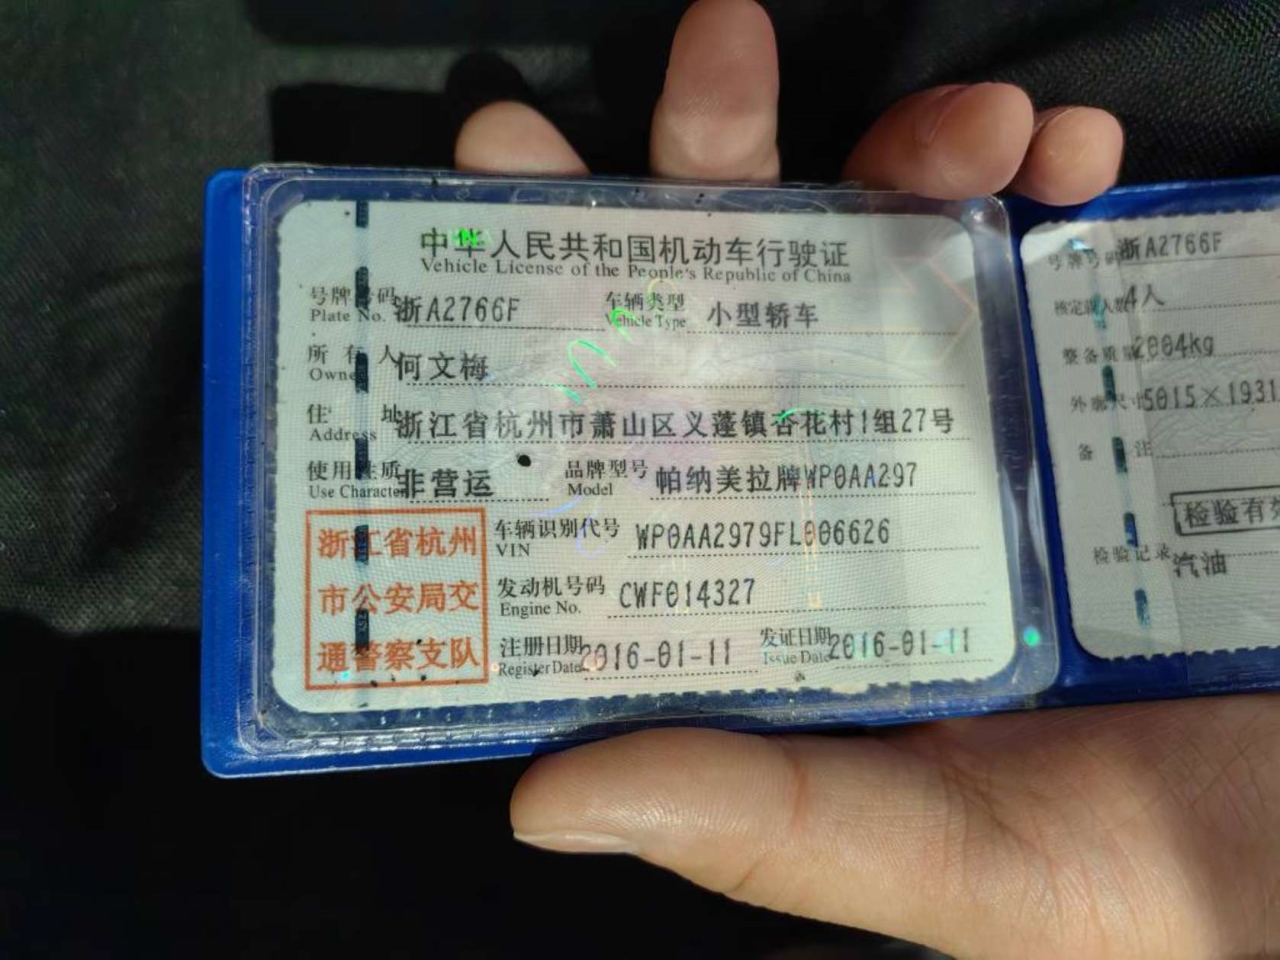 中华人民共和国机动车行驶证
Vehicle License of the People's Republic of China
号牌号码 浙A2766F 车辆类型 小型轿车
Plate No. Vehicle Type
所有人 何文梅
Owner
住址 浙江省杭州市萧山区义蓬镇杏花村1组27号
Address
使用性质 非营运 品牌型号 帕纳美拉牌WP0AA297
Use Character Model
浙江省杭州
市公安局交
通警察支队
车辆识别代号 WP0AA2979FL006626
VIN
发动机号码 CWF014327
Engine No.
注册日期 2016-01-11 发证日期 2016-01-11
Register Date Issue Date
号牌号码 浙A2766F
核定载人数 4人
整备质量 2004kg
外廓尺寸 5015×1931
备注
检验有效
检验记录
汽油